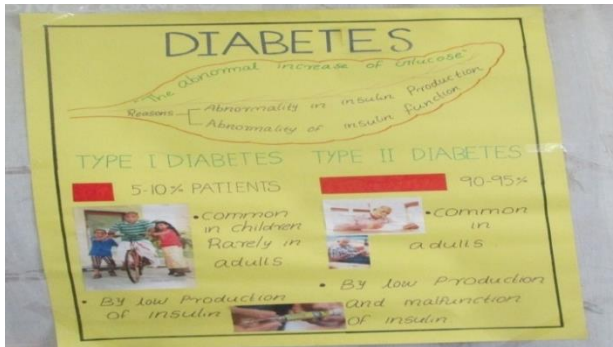 DIABETES
"The abnormal increase of Glucose"
Reasons
Abnormality in insulin Production
Abnormality of insulin Function
TYPE I DIABETES
5-10% PATIENTS
• Common
in children
Rarely in
adults
• By low Production
of insulin
TYPE II DIABETES
90-95%
• Common
in
adults
• By low Production
and malfunction
of insulin